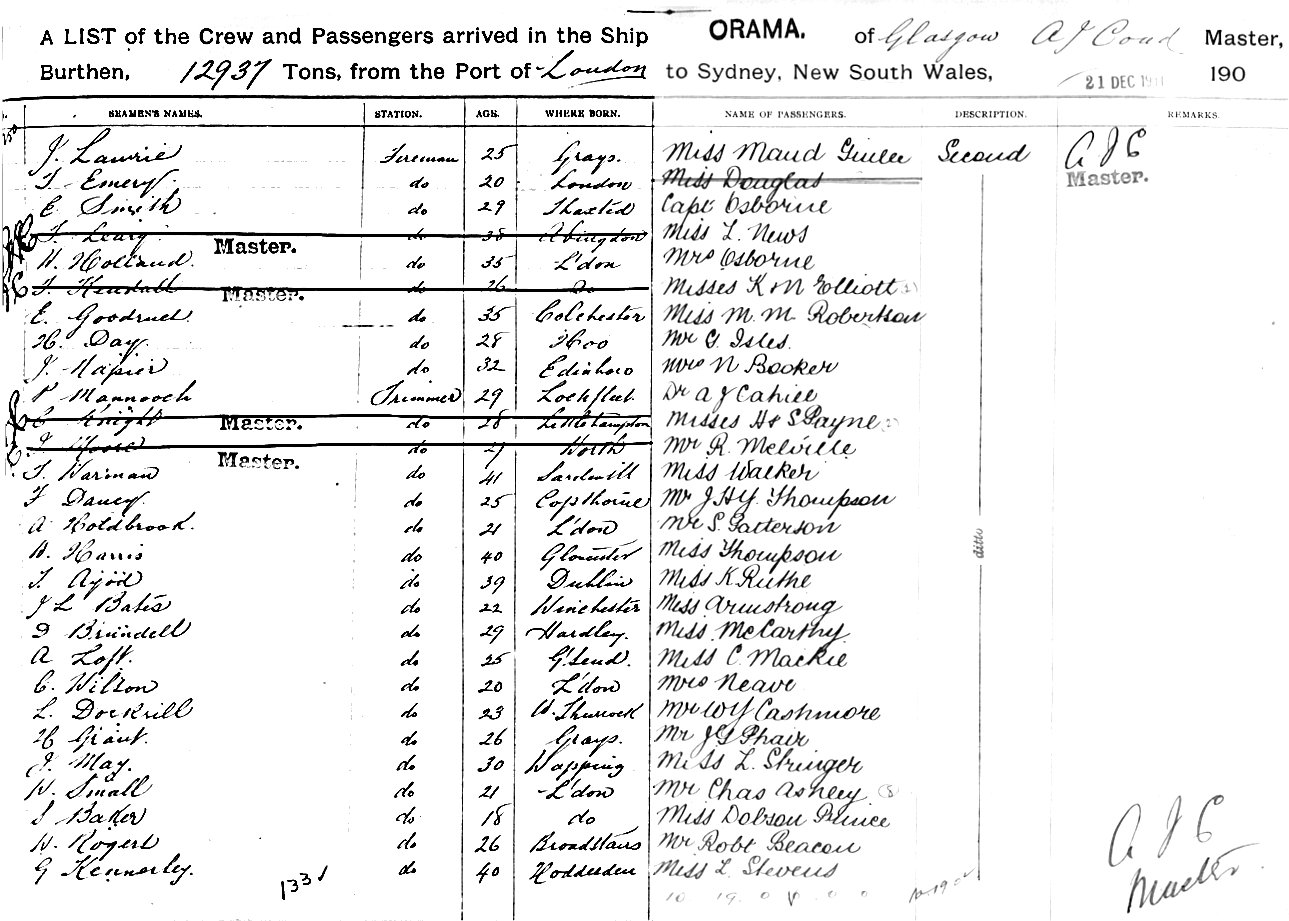 A LIST of the Crew and Passengers arrived in the Ship ORAMA. of Glasgow A J Coad Master,
Burthen, 12937 Tons, from the Port of London to Sydney, New South Wales, 21 DEC 1911 190
SEAMEN'S NAMES. STATION. AGE. WHERE BORN. NAME OF PASSENGERS. DESCRIPTION. REMARKS.
J. Lawrie Fireman 25 Grays. Miss Maud Second A J C
Master.
T. Emery do 20 London Miss Douglas
E. Smith do 29 Thaxted Capt Osborne
T. Leary do 38 Abingdon Miss L. News
Master.
W. Holland. do 35 L'don Mrs Osborne
T. Kendall do 26 Do Misses K & M Elliott
Master.
E. do 35 Colchester Miss M. M. Robertson
H. Day. do 28 Hoo Mr G. Isles.
J. Napier do 32 Edinboro Mrs N Booker
P. Mannoch Trimmer 29 Lochfleet. Dr A J Cahill
C. Knight do 28 Littlehampton Misses H & S Payne
Master.
J. Moore do 27 Worth Mr R. Melville
Master.
T. Harman do 41 Miss Walker
F Dancy do 25 Copthorne Mr J. H. Y. Thompson
A Holdbrook. do 21 L'don Mr S. Patterson
W. Harris do 40 Gloucester Miss Thompson
T. do 39 Dublin Miss K. Ruthe
J L Bates do 22 Winchester Miss Armstrong
D Brundell do 29 Hardley. Miss McCarthy
A Loft. do 25 G'Send. Miss C. Mackie
C. Wilson do 20 L'don Mrs Neave
L. Dockrill do 23 W. Thurrock Mr W Y Cashmore
H Grant. do 26 Grays. Mr J G Phair
J. May. do 30 Wapping Miss L. Stringer
W. Small do 21 L'don Mr Chas Ashley
S Baker do 18 do Miss Dobson Prince
W. Rogers do 26 Broadstairs Mr Robt Beacon
G Kennerley. do 40 Hoddesden Miss L. Stevens
ditto
A J C
Master.
133